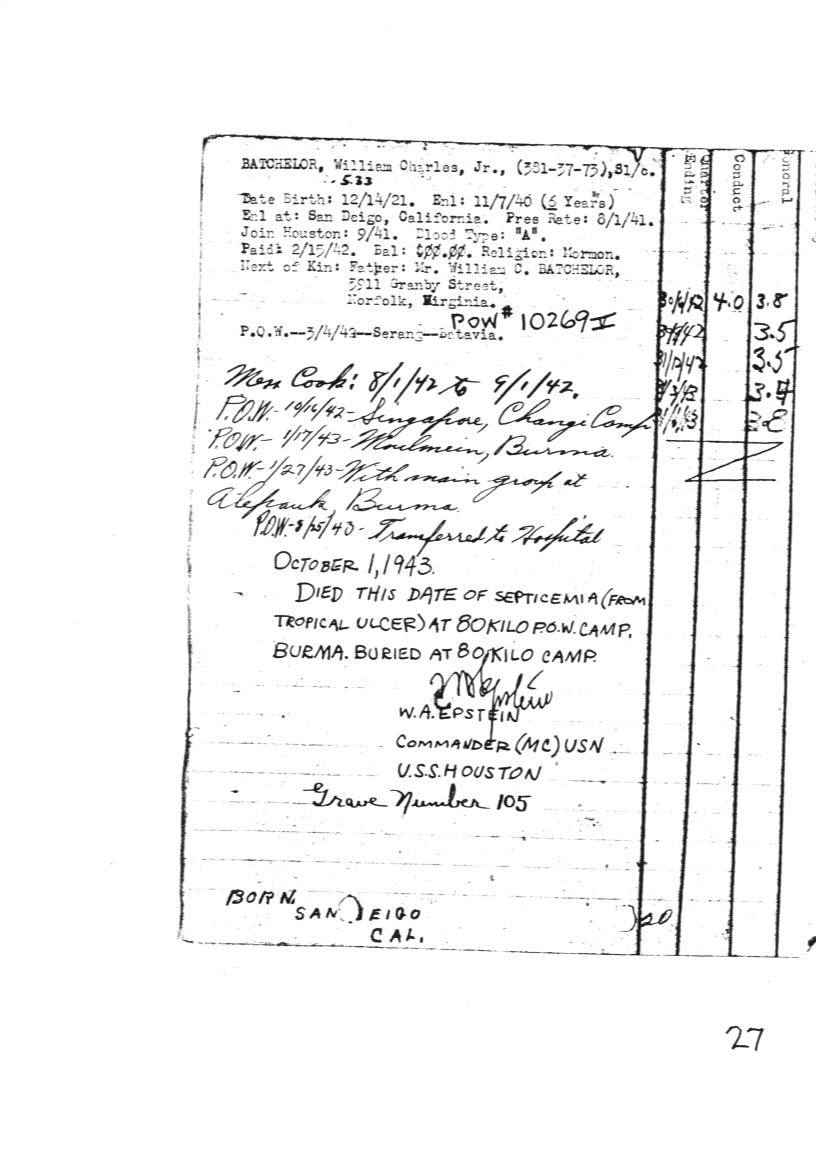 BATCHELOR, William Charles, Jr., (381-37-73), S1/c.
5.33
Date Birth: 12/14/21. Enl: 11/7/40 (6 Years)
Enl at: San Deigo, California. Pres Rate: 8/1/41.
Join Houston: 9/41. Blood Type: "A".
Paid: 2/15/42. Bal: $00.00. Religion: Mormon.
Next of Kin: Father: Mr. William C. BATCHELOR,
Granby Street,
Norfolk, Virginia.
POW# 10269 V
P.O.W.--3/4/42--Serang--Batavia.
Mess Cook: 8/1/42 to 9/1/42.
P.O.W.- 10/16/42 - Singapore, Changi Camp
P.O.W.- 1/17/43 - Moulmein, Burma.
P.O.W.- 1/27/43 - With main group at
Alepauk, Burma.
P.O.W.- 8/25/43 - Transferred to Hospital
OCTOBER 1, 1943.
DIED THIS DATE OF SEPTICEMIA (FROM
TROPICAL ULCER) AT 80 KILO P.O.W. CAMP,
BURMA. BURIED AT 80 KILO CAMP.
W.A. EPSTEIN
COMMANDER (MC) USN
U.S.S. HOUSTON
Grave Number 105
BORN.
SAN DEIGO
CAL.
20
Quarter Ending
Conduct
4.0 3.8
3.5
3.5
27